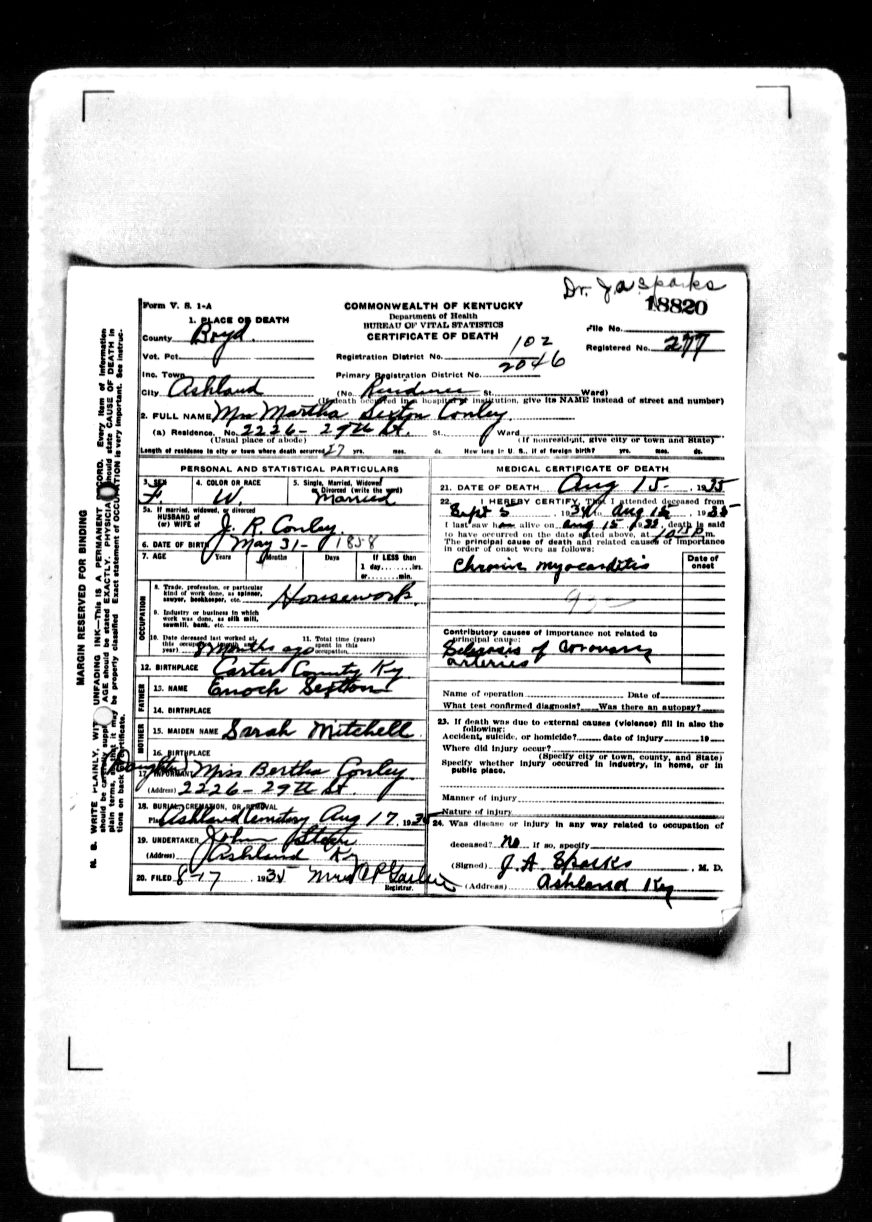 Dr. J A Sparks
18820
Form V. S. 1-A
COMMONWEALTH OF KENTUCKY
Department of Health
BUREAU OF VITAL STATISTICS
CERTIFICATE OF DEATH
1. PLACE OF DEATH
County Boyd.
Vot. Pct.
Inc. Town
City Ashland
Registration District No. 102
Primary Registration District No. 2046
File No.
Registered No. 277
(No. Residence St. Ward)
(If death occurred in a hospital or institution, give its NAME instead of street and number)
2. FULL NAME Mrs Martha Sexton Conley
(a) Residence. No. 2226 - 29th St. St., Ward
(Usual place of abode) (If nonresident, give city or town and State)
Length of residence in city or town where death occurred 27 yrs. mos. ds. How long in U. S., if of foreign birth? yrs. mos. ds.
PERSONAL AND STATISTICAL PARTICULARS
3. SEX F.
4. COLOR OR RACE W.
5. Single, Married, Widowed or Divorced (write the word) Married
5a. If married, widowed, or divorced
HUSBAND of
(or) WIFE of J. R. Conley.
6. DATE OF BIRTH May 31 - 1858
7. AGE Years Months Days If LESS than
1 day hrs.
or min.
OCCUPATION
8. Trade, profession, or particular
kind of work done, as spinner,
sawyer, bookkeeper, etc. Housework.
9. Industry or business in which
work was done, as silk mill,
sawmill, bank, etc.
10. Date deceased last worked at
this occupation (month and
year) 8 months ago
11. Total time (years)
spent in this
occupation
12. BIRTHPLACE Carter County Ky
FATHER
13. NAME Enoch Sexton
14. BIRTHPLACE
MOTHER
15. MAIDEN NAME Sarah Mitchell.
16. BIRTHPLACE
(Daughter)
17. INFORMANT Miss Bertha Conley
(Address) 2226 - 29th St.
18. BURIAL, CREMATION, OR REMOVAL
Place Ashland Cemetery Aug 17, 1935
19. UNDERTAKER John Steen
(Address) Ashland Ky
20. FILED 8-17 1935 Mrs
Registrar.
MEDICAL CERTIFICATE OF DEATH
21. DATE OF DEATH Aug 15 - , 1935
22. I HEREBY CERTIFY, That I attended deceased from
Sept 5 , 1934 to Aug 15 , 1935
I last saw h alive on Aug 15 , 1935, death is said
to have occurred on the date stated above, at P m.
The principal cause of death and related causes of importance
in order of onset were as follows:
Date of
onset
Chronic myocarditis
Contributory causes of importance not related to
principal cause:
Sclerosis of Coronary
arteries
Name of operation Date of
What test confirmed diagnosis? Was there an autopsy?
23. If death was due to external causes (violence) fill in also the
following:
Accident, suicide, or homicide? date of injury 19
Where did injury occur?
(Specify city or town, county, and State)
Specify whether injury occurred in industry, in home, or in
public place.
Manner of injury
Nature of injury
24. Was disease or injury in any way related to occupation of
deceased? No If so, specify
(Signed) J. A. Sparks , M. D.
(Address) Ashland Ky
MARGIN RESERVED FOR BINDING
N. B. WRITE PLAINLY, WITH UNFADING INK—This is A PERMANENT RECORD. Every item of information
should be carefully supplied. AGE should be stated EXACTLY. PHYSICIANS should state CAUSE OF DEATH in
plain terms, so that it may be properly classified. Exact statement of OCCUPATION is very important. See instruc-
tions on back of certificate.